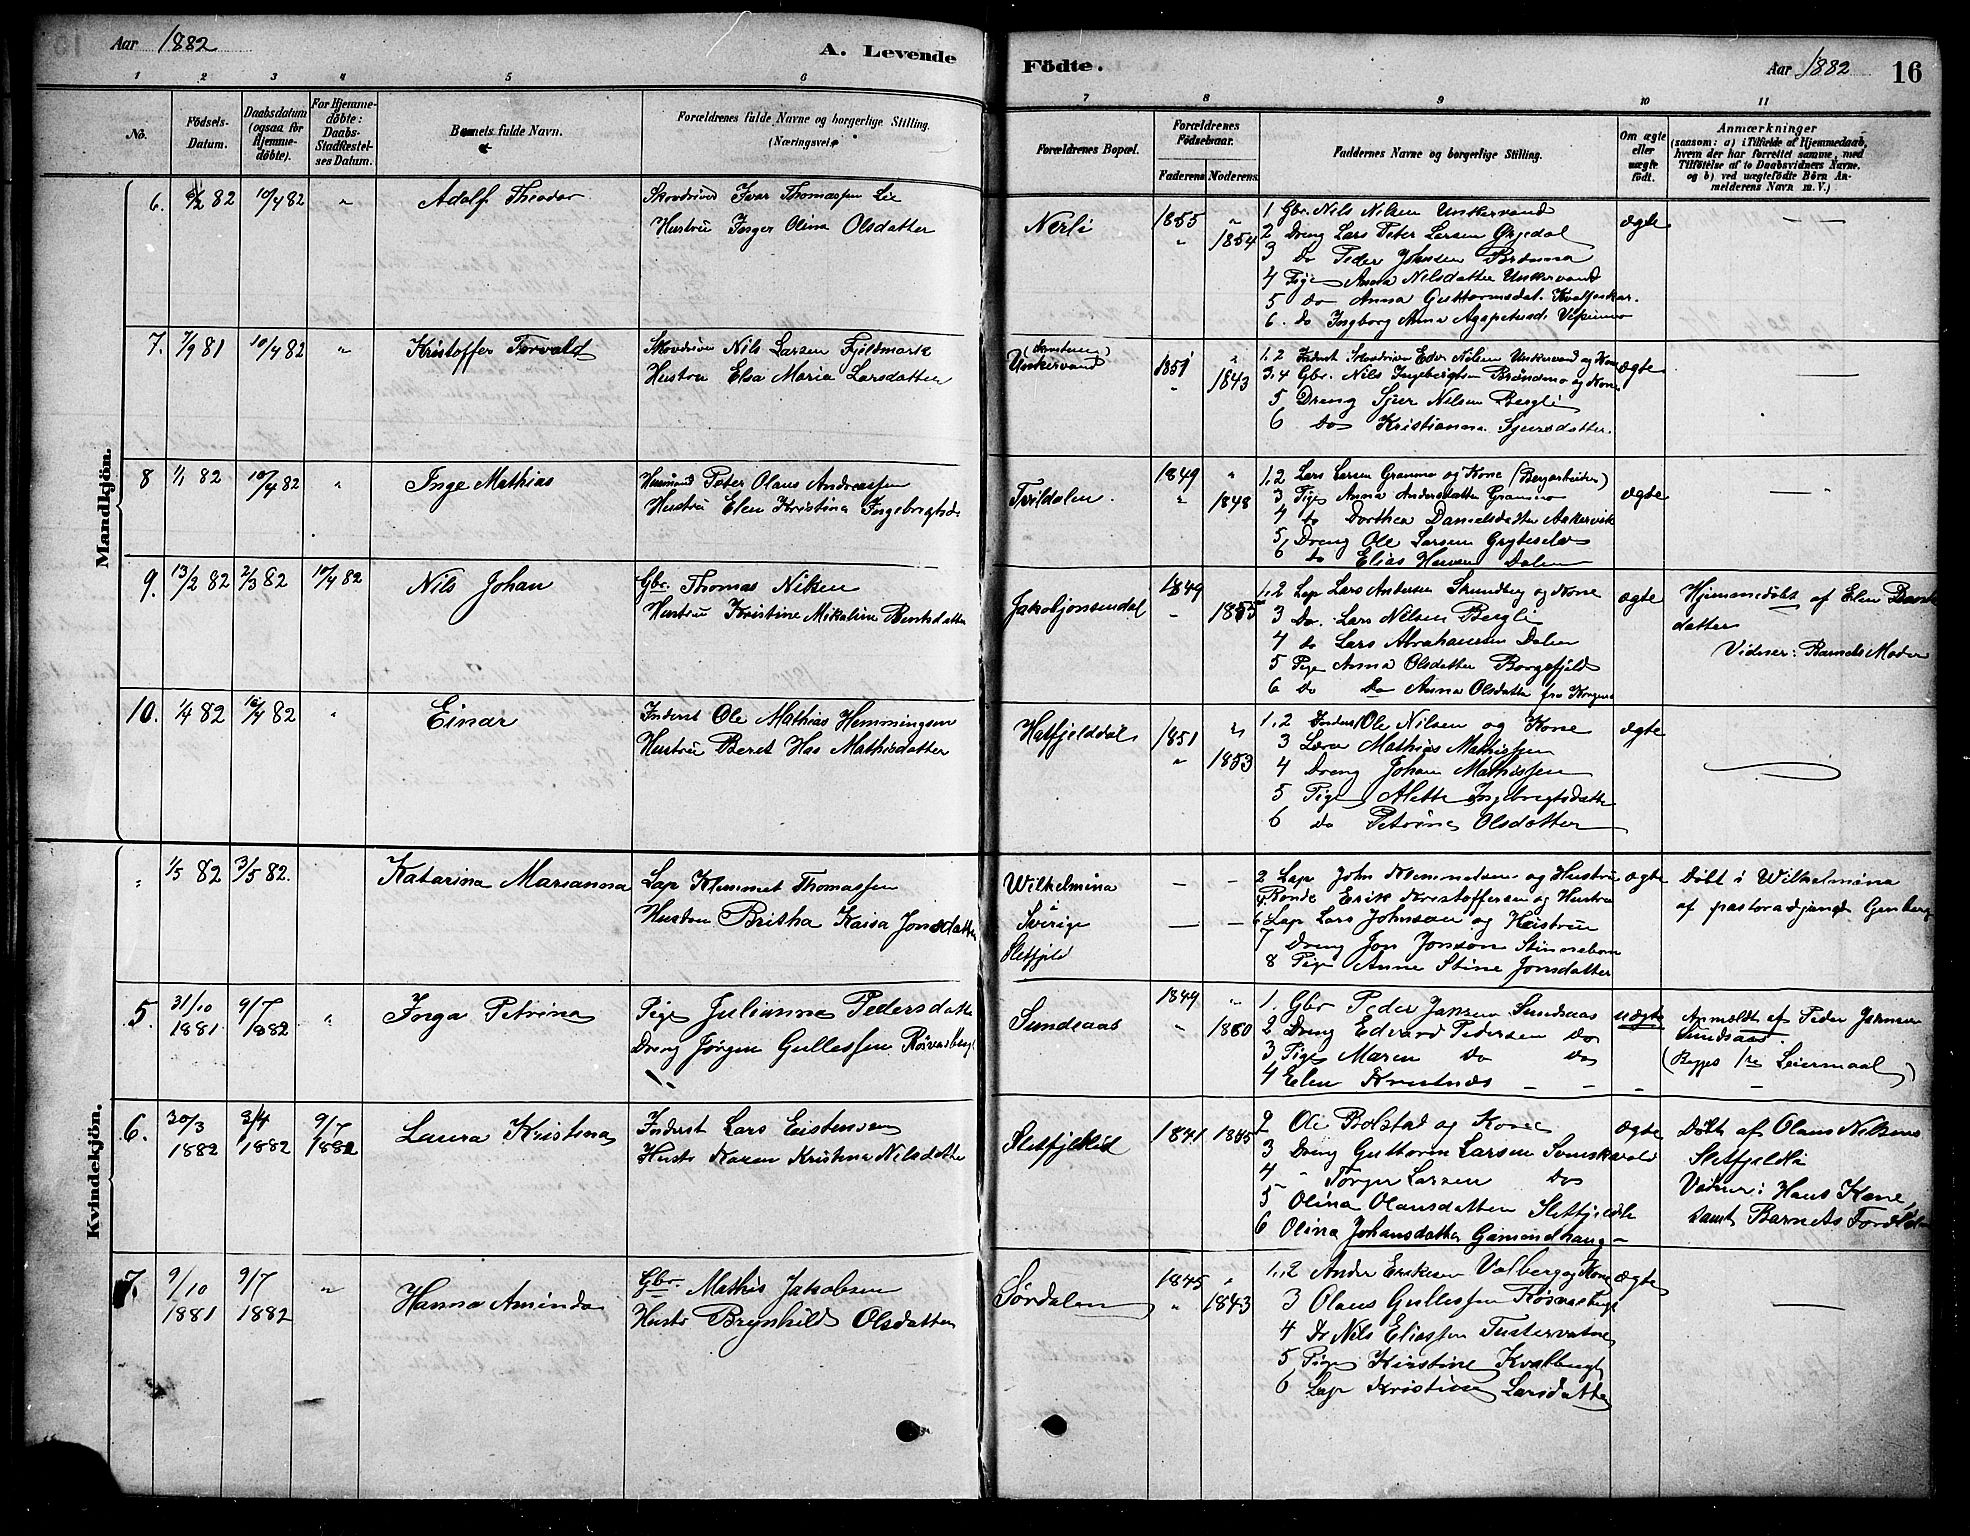 Aar 1882
A. Levende
Födte.
Aar 1882
16
1 2 3 4 5 6 7 8 9 10 11
No.
Födsels-
Datum.
Daabsdatum
(ogsaa for
Hjemme-
döbte).
For Hjemme-
döbte:
Daabs-
Stadfæstel-
ses Datum.
Barnets fulde Navn.
Forældrenes fulde Navne og borgerlige Stilling.
(Næringsvei.)
Forældrenes Bopæl.
Forældrenes
Födselsaar.
Faderens. Moderens.
Faddernes Navne og borgerlige Stilling.
Om ægte
eller
uægte
födt.
Anmærkninger
(saasom: a) i Tilfælde af Hjemmedaab,
hvem der har forrettet samme, med
Tilföielse af to Daabsvidners Navne.
og b) ved uægtefödte Börn An-
melderens Navn m. V.)
Mandkjön.
6. 6/2 82 10/4 82 " Adolf Theodor
Skovdriver Ivar Thomassen Lie
Hustru Inger Olina Olsdatter
Nerli
1855 "
" 1854
1 Gbr. Nils Nilsen Unkervand
2 Dreng Lars Peter Larsen
3 Do Peder Johnsen
4 Pige Anna Nilsdatter Unkervand
5 do Anna Guttormsdat.
6. do Ingborg Anna
ægte
7. 7/9 81 10/4 82 " Kristoffer Torvald
Skovdriver Nils Larsen Fjeldmark
Hustru Elsa Maria Larsdatter
Unkervand
1851 "
" 1843
1,2 Inderst Skovdriver Edv. Nilsen Unkervand og Kone
3,4 Gbr. Nils Ingebrigtsen Bröndmo og Kone
5 Dreng Sjur Nilsen Bergli
6 Do Kristianna Sjursdatter.
ægte
8 1/1 82 10/4 82 " Inge Mathias
Husmand Peter Olaus Andreassen
Hustru Elen Kristina Ingebrigtsd.
1849 "
" 1848
1,2 Lars Larsen Granmo og Kone (Bergarbeider)
3 Pige Anna Andersdatter Granmo
4 do Dorthea Danielsdatter Aakervik
5 Dreng Ole Larsen
6 do Elias Hansen Dalen
ægte
9. 13/2 82 2/3 82 10/4 82 Nils Johan
Gbr. Thomas Nilsen
Hustru Kristine Mikaline Bentsdatter
Jakobjonsendal
1849
" 1855
1,2 Lap Lars Andersen Strundberg og Kone
3 Do. Lars Nilsen Bergli
4 do Lars Abrahamsen Dalen
5 Pige Anna Olsdatter Borgefjeld
6 Do Do Anna Olsdatter fra
ægte
Hjemmedöbt af Elen
datter
Vidner: Barnets Moder
10. 1/4 82 10/4 82 " Einar
Inderst Ole Mathias Hemmingsen
Hustru Beret Has Mathisdatter
Hatfjelddal
1851 "
" 1853
1,2 Inderst Ole Nilsen og Kone
3 Mathias Mathissen
4 Dreng Johan Mathissen
5 Pige Alette Ingebrigtsdatter
6 do Petrine Olsdatter
ægte
Kvindekjön.
" 1/5 82 3/5 82. " Katarina Marianna
Lap Klemmet Thomassen
Hustru Britha Kaisa Jonsdatter
Wilhelmina
Sverige
Sletfjeld
2 Lap John Klemmetsen og Hustru
4 Bonde Erik Kristoffersen og Hustru
6 Lap Lars Johnsen og Hustru
7 Dreng Jon Jonson
8 Pige Anne Stine Jonsdatter
ægte
Döbt i Wilhelmina
af pastoradjunct Genberg
5. 31/10 1881 9/7 1882 " Inga Petrina
Pige Julianne Pedersdatter
Dreng Jörgen Gullessen
Sundsaas
1849 "
" 1860
1. Gbr Peder Jansen Sundsaas
2 Dreng Edvard Pedersen do
3 Pige Maren do do
4 Elen
uægte
Anmeldt af Peder Jansen
Sundsaas.
(Begges 1ste Leiermaal)
6. 30/3 1882 3/4 1882 9/7 1882 Laura Kristina
Inderst Lars Eistensen
Hustr Karen Kristina Nilsdatter
1841 1845
2 Ole Bolstad og Kone
3 Dreng Guttorm Larsen
4 " Torger Larsen do
5 Olina Olausdatter
6 Olina Johansdatter
ægte
Döbt af Olaus Nilsens
Sletfjeldli
Vidner: Hans Kone,
samt Barnets Forældre
7. 9/10 1881 9/7 1882 " Hanna Aminda
Gbr. Mathis Jakobsen
Hustr Brynhild Olsdatter
Sördalen
1845 "
" 1843
1,2 Ander Eriksen Valberg og Kone
3 Olaus Gullessen
4 Do Nils Eliassen Tustervatne
5 Pige Kirstine
6 Lap Kristine Larsdatter
ægte